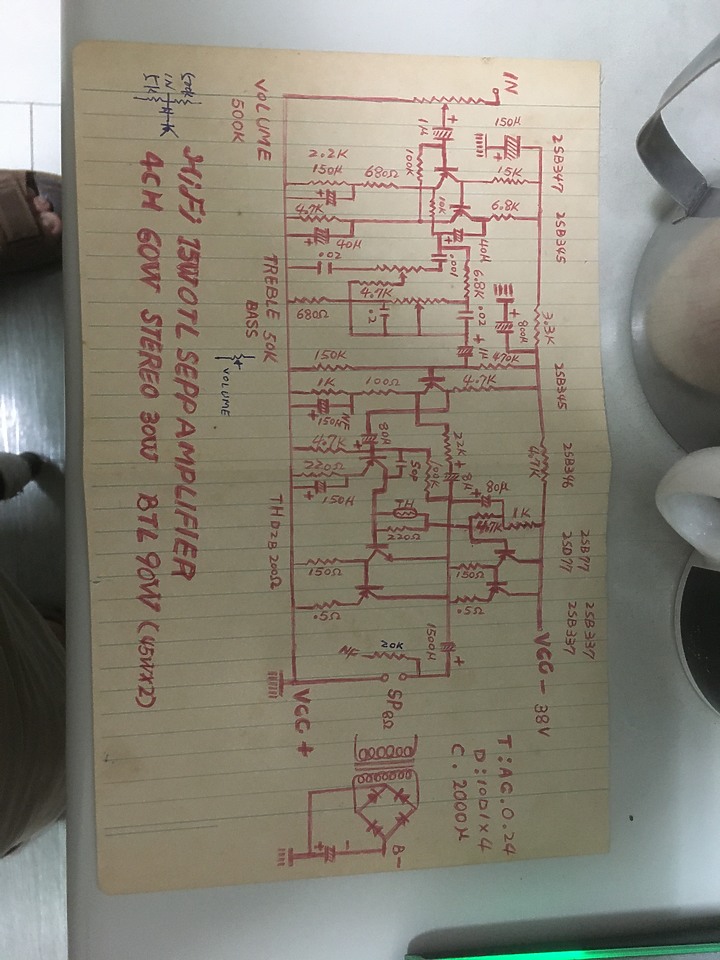 IN
150μ
2SB347
2SB345
2SB345
2SB346
2SB77
2SD77
2SB337
2SB337
VCC - 38V
1μ
15K
6.8K
3.3K
4.7K
100K
10K
40μ
.001
6.8K
.02
800μ
1μ
470K
4.7K
22K
8μ
80μ
1K
4.7K
100K
50P
TH
220Ω
150Ω
.5Ω
1500μ
2.2K
150μ
680Ω
4.7K
40μ
.02
4.7K
.2
680Ω
150K
1K
100Ω
150μ
NF
80μ
4.7K
220Ω
150μ
150Ω
.5Ω
20K
NF
SP8Ω
VCC +
VOLUME
500K
TREBLE 50K
BASS
VOLUME
TH D2B 200Ω
T: AC. 0. 24
D: 10D1 x 4
C. 2000μ
B-
500K
IN
51K
HiFi 15W OTL SEPP AMPLIFIER
4CH 60W STEREO 30W BTL 90W (45W x 2)